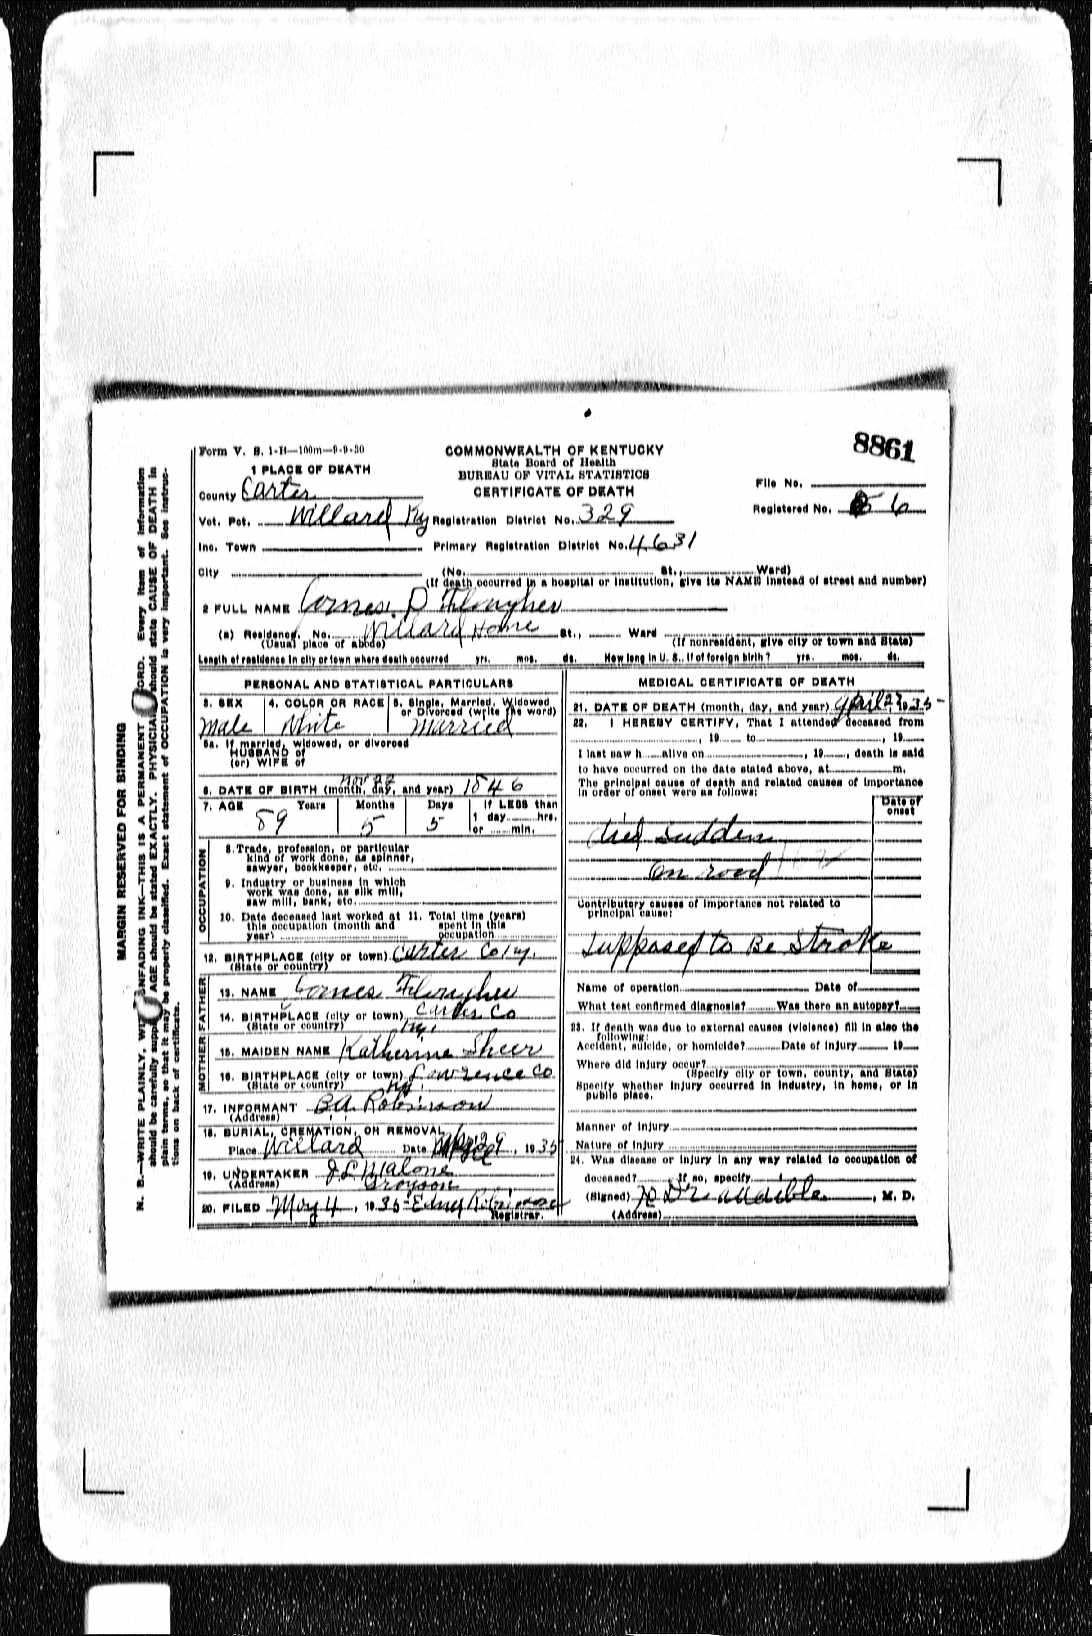 8861
Form V. S. 1-B—100m—9-9-30
COMMONWEALTH OF KENTUCKY
State Board of Health
BUREAU OF VITAL STATISTICS
CERTIFICATE OF DEATH
1 PLACE OF DEATH
File No.
County Carter
Registered No. 6
Vot. Pct. Willard Ky Registration District No. 329
Inc. Town Primary Registration District No. 4631
City (No. St., Ward)
(If death occurred in a hospital or institution, give its NAME instead of street and number)
2 FULL NAME P
(a) Residence, No. Willard Home St., Ward
(Usual place of abode) (If nonresident, give city or town and State)
Length of residence in city or town where death occurred yrs. mos. ds. How long in U. S., if of foreign birth? yrs. mos. ds.
PERSONAL AND STATISTICAL PARTICULARS
3. SEX 4. COLOR OR RACE 5. Single, Married, Widowed
or Divorced (write the word)
Male White Married
5a. If married, widowed, or divorced
HUSBAND of
(or) WIFE of
Nov 22
6. DATE OF BIRTH (month, day, and year) 1846
7. AGE Years Months Days If LESS than
1 day hrs.
or min.
89 5 5
OCCUPATION
8. Trade, profession, or particular
kind of work done, as spinner,
sawyer, bookkeeper, etc.
9. Industry or business in which
work was done, as silk mill,
saw mill, bank, etc.
10. Date deceased last worked at 11. Total time (years)
this occupation (month and spent in this
year) occupation
12. BIRTHPLACE (city or town) Carter Co Ky.
(State or country)
FATHER
13. NAME
14. BIRTHPLACE (city or town) Carter Co
(State or country) Ky.
MOTHER
15. MAIDEN NAME Katherine Sheer
16. BIRTHPLACE (city or town) Lawrence Co
(State or country) Ky.
17. INFORMANT B.A. Robinson
(Address)
18. BURIAL, CREMATION, OR REMOVAL
Place Willard Date 29, 1935
19. UNDERTAKER J L Malone
(Address) Grayson
20. FILED May 4, 1935 Edney Robinson
Registrar.
MEDICAL CERTIFICATE OF DEATH
21. DATE OF DEATH (month, day, and year) April 27, 1935
22. I HEREBY CERTIFY, That I attended deceased from
, 19 to , 19
I last saw h alive on , 19 , death is said
to have occurred on the date stated above, at m.
The principal cause of death and related causes of importance
in order of onset were as follows:
Date of
onset
died sudden
on road
Contributory causes of importance not related to
principal cause:
Supposed to Be Stroke
Name of operation Date of
What test confirmed diagnosis? Was there an autopsy?
23. If death was due to external causes (violence) fill in also the
following:
Accident, suicide, or homicide? Date of injury 19
Where did injury occur?
(Specify city or town, county, and State)
Specify whether injury occurred in industry, in home, or in
public place.
Manner of injury
Nature of injury
24. Was disease or injury in any way related to occupation of
deceased? If so, specify
(Signed) , M. D.
(Address)
MARGIN RESERVED FOR BINDING
N. B.—WRITE PLAINLY, UNFADING INK—THIS IS A PERMANENT Every item of information
should be carefully AGE should be stated EXACTLY. PHYSICIANS should state CAUSE OF DEATH in
plain terms, so that it may be properly classified. Exact statement of OCCUPATION is very important. See instruc-
tions on back of certificate.